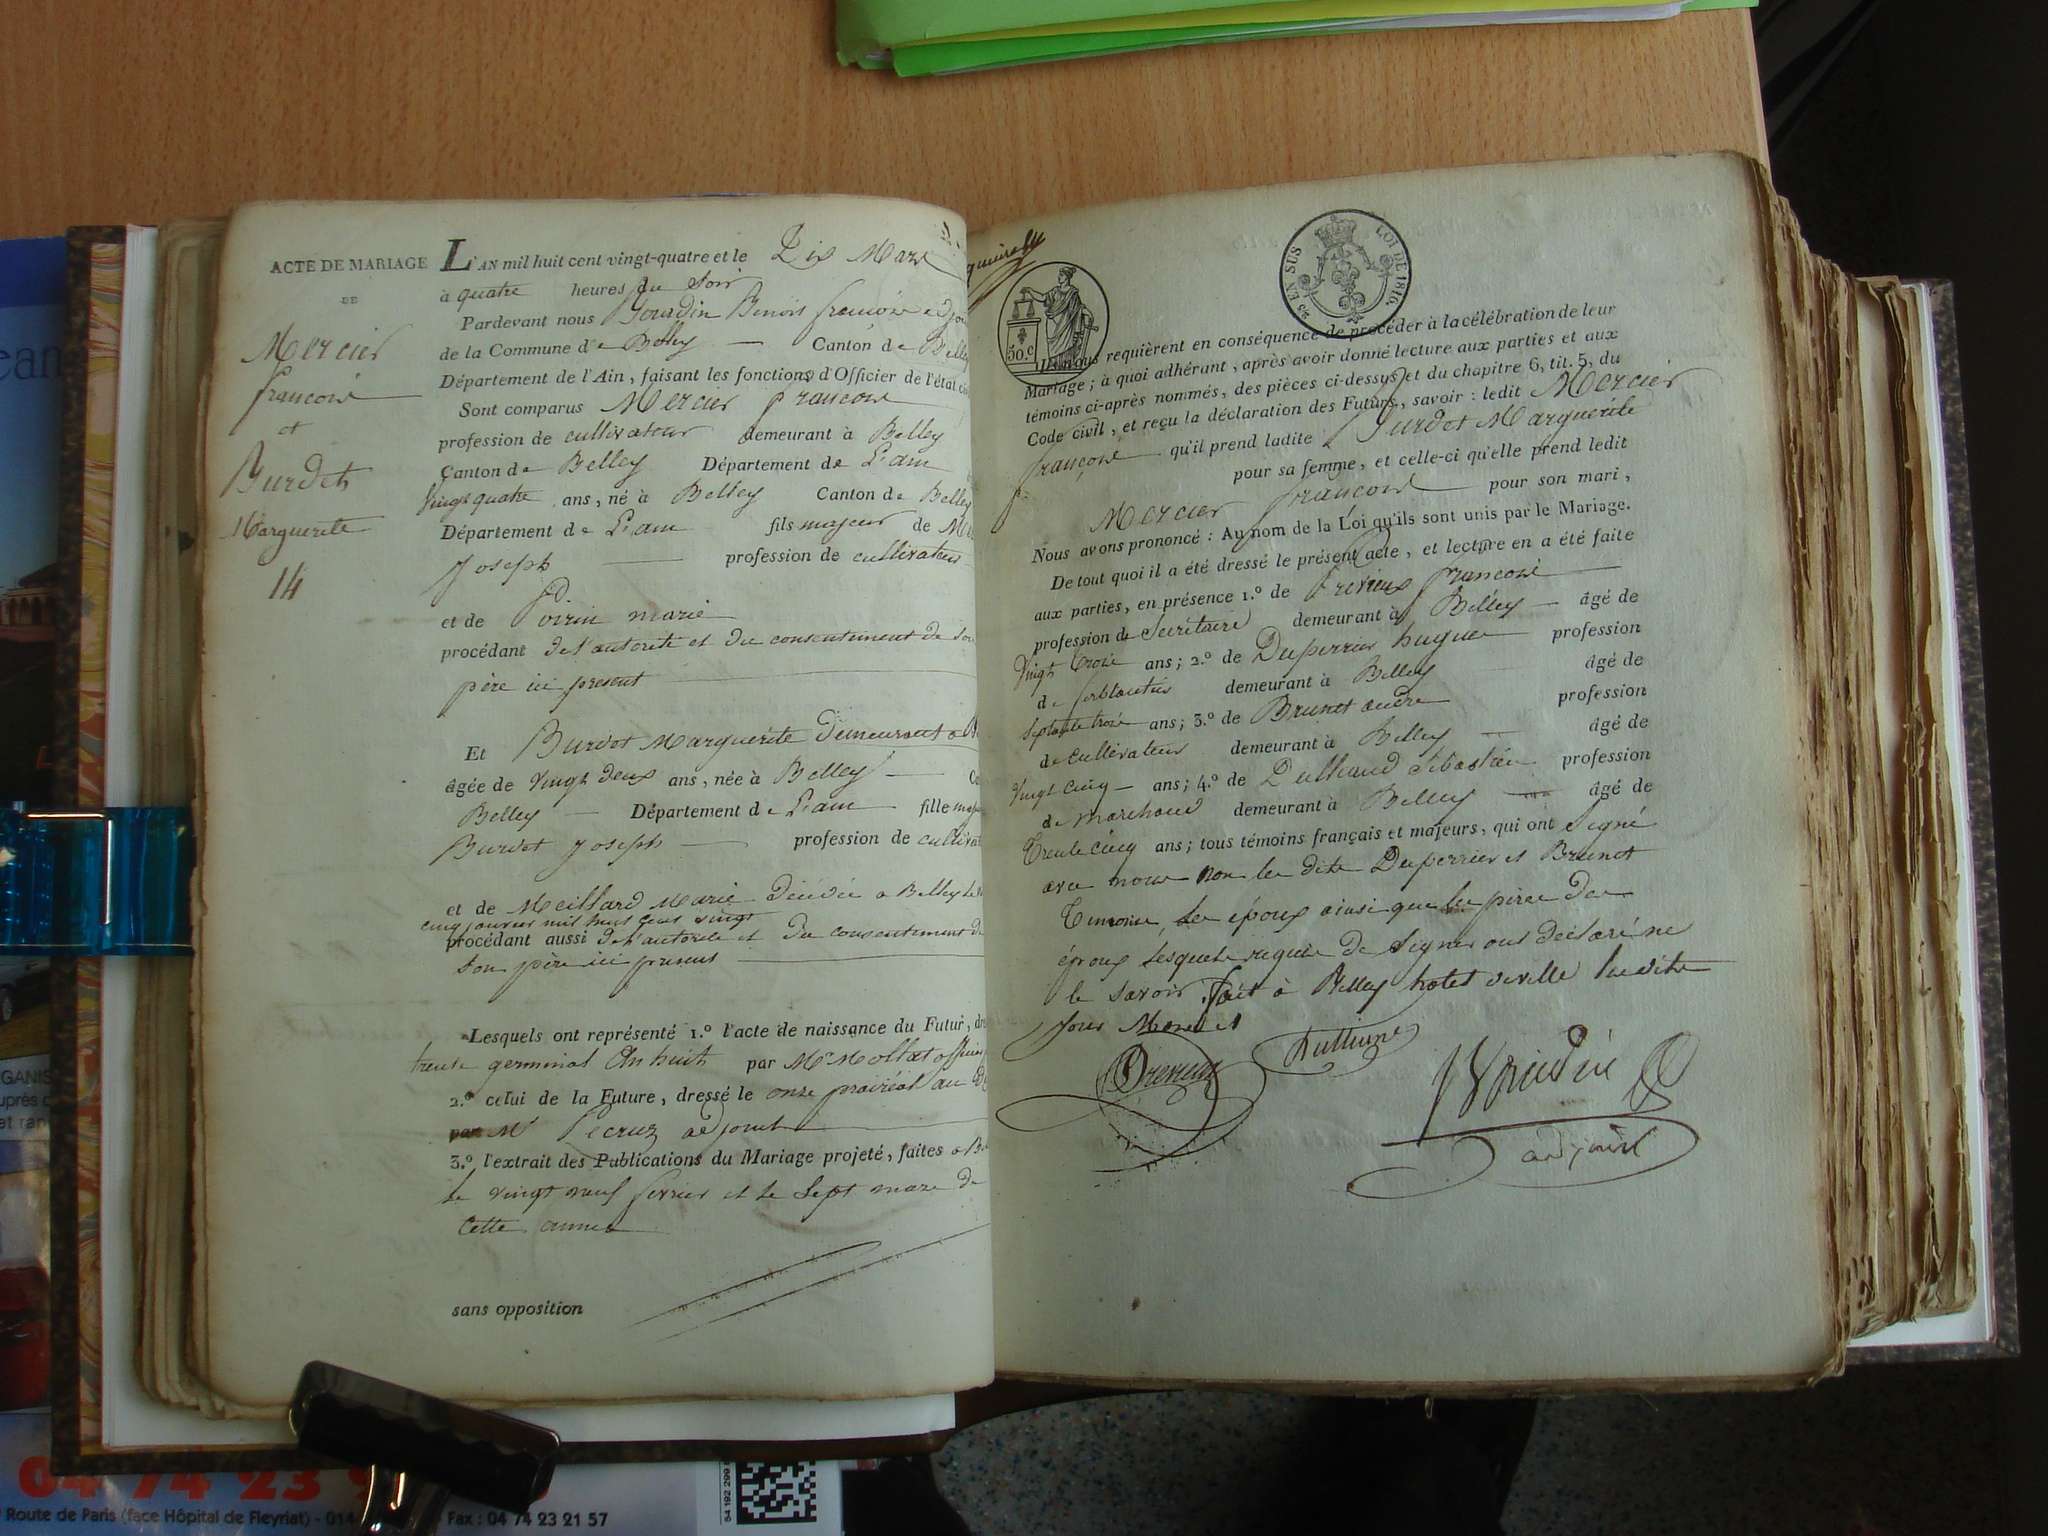 ACTE DE MARIAGE
DE
Mercier
françois
et
Burdet
Marguerite
14
L'AN mil huit cent vingt-quatre et le Dix Mars
à quatre heures du Soir
Pardevant nous Gourdin Benoit françois adjoi
de la Commune de Belley — Canton de Belley
Département de l'Ain, faisant les fonctions d'Officier de l'état civ
Sont comparus Mercier françois
profession de cultivateur demeurant à Belley
Canton de Belley Département de L'ain
Vingt quatre ans, né à Belley Canton de Belley
Département de L'ain fils majeur de Me
Joseph — profession de cultivateur
et de marie
procédant de l'autorité et du consentement de son
père ici present
Et Burdet Marguerite demeurant a B
âgée de vingt deux ans, née à Belley — Ca
Belley — Département de L'ain fille maj
Burdet Joseph — profession de cultivat
et de Meillard Marie décédée a Belley le
cinq janvier mil huit cent vingt
procédant aussi de l'autorité et du consentement de
son père ici present
Lesquels ont représenté 1.º l'acte de naissance du Futur, dre
trente germinal an huit par Mr Mollet officier
2.º celui de la Future, dressé le onze prairéal an
par Mr Pecruz adjoint
3.º l'extrait des Publications du Mariage projeté, faites a B
le vingt neuf fevrier et le Sept mars de
cette année
sans opposition
EN SUS LOI DE 1816.
50.c
nous requièrent en conséquence de procéder à la célébration de leur
Mariage; à quoi adhérant, après avoir donné lecture aux parties et aux
témoins ci-après nommés, des pièces ci-dessus et du chapitre 6, tit. 5, du
Code civil, et reçu la déclaration des Futurs, savoir: ledit Mercier
françois qu'il prend ladite Burdet Marguerite
pour sa femme, et celle-ci qu'elle prend ledit
Mercier françois pour son mari,
Nous avons prononcé: Au nom de la Loi qu'ils sont unis par le Mariage.
De tout quoi il a été dressé le présent acte, et lecture en a été faite
aux parties, en présence 1.º de Prévieux françois
profession de Secrétaire demeurant à Belley — âgé de
Vingt trois ans; 2.º de Duperrier hugues profession
de ferblantier demeurant à Belley âgé de
septante trois ans; 3.º de Brunet andré profession
de cultivateur demeurant à Belley âgé de
Vingt cinq — ans; 4.º de Sébastien profession
de marchand demeurant à Belley âgé de
Trente cinq ans; tous témoins français et majeurs, qui ont signé
avec nous non les dits Duperrier et Brunet
Temoins, les époux ainsi que les pères des
époux lesquels requis de signer ont déclaré ne
le savoir. fait à Belley hotel de ville lesdits
jour Mois et
Prévieux
adjoint
04 74 23
Route de Paris (face Hôpital de Fleyriat) - 014
Fax : 04 74 23 21 57